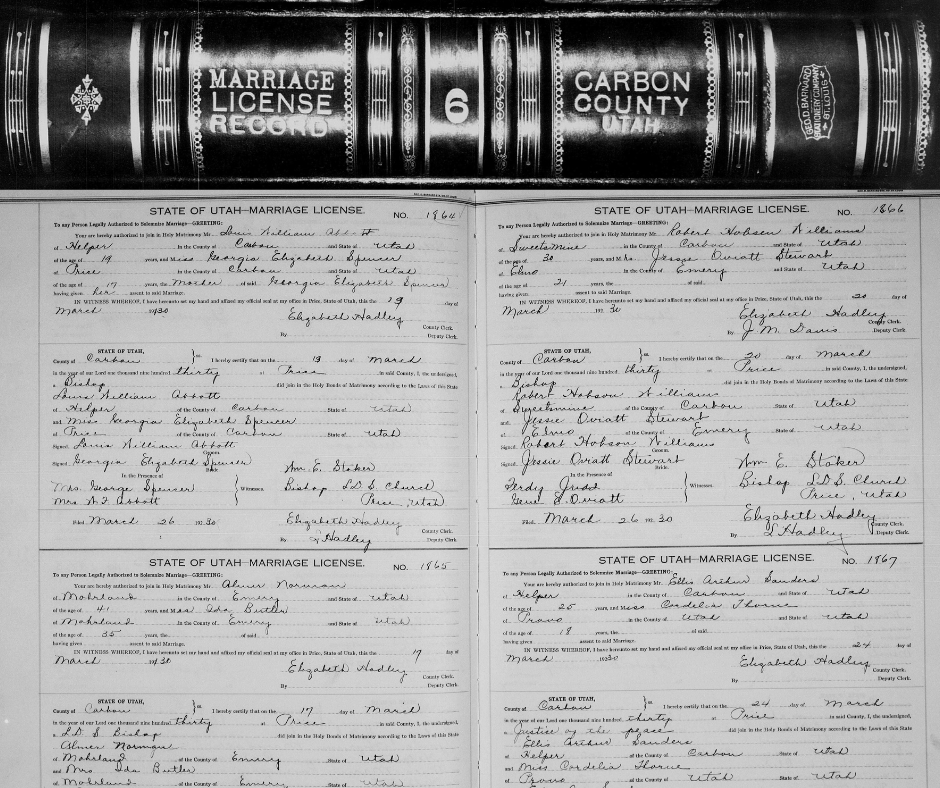 MARRIAGE
LICENSE
RECORD
6
CARBON
COUNTY
UTAH
GEO. D. BARNARD
STATIONERY COMPANY
ST. LOUIS
STATE OF UTAH—MARRIAGE LICENSE.
NO. 1864
To any Person Legally Authorized to Solemnize Marriage—GREETING:
Your are hereby authorized to join in Holy Matrimony Mr. Louis William Abbott
of Helper in the County of Carbon and State of Utah
of the age of 19 years, and Miss Georgia Elizabeth Spencer
of Price in the County of Carbon and State of Utah
of the age of 17 years, the Mother of said Georgia Elizabeth Spencer
having given her assent to said Marriage.
IN WITNESS WHEREOF, I have hereunto set my hand and affixed my official seal at my office in Price, State of Utah, this the 19 day of
March 1930
Elizabeth Hadley
County Clerk.
By Deputy Clerk.
STATE OF UTAH,
County of Carbon } ss. I hereby certify that on the 19 day of March
in the year of our Lord one thousand nine hundred thirty at Price in said County, I, the undersigned,
a Bishop did join in the Holy Bonds of Matrimony according to the Laws of this State
Louis William Abbott
of Helper of the County of Carbon State of Utah
and Miss Georgia Elizabeth Spencer
of Price of the County of Carbon State of Utah
Signed Louis William Abbott
Groom.
Signed Georgia Elizabeth Spencer
Bride.
Wm. E. Stoker
In the Presence of
Mrs. George Spencer } Witnesses. Bishop L D S. Church
Mrs W F Abbott Price, Utah
Filed March 26 1930 Elizabeth Hadley
County Clerk.
By Hadley Deputy Clerk.
STATE OF UTAH—MARRIAGE LICENSE.
NO. 1865
To any Person Legally Authorized to Solemnize Marriage—GREETING:
Your are hereby authorized to join in Holy Matrimony Mr. Almer Norman
of Mohrland in the County of Emery and State of Utah
of the age of 41 years, and Mrs. Ida Butler
of Mohrland in the County of Emery and State of Utah
of the age of 35 years, the of said
having given assent to said Marriage.
IN WITNESS WHEREOF, I have hereunto set my hand and affixed my official seal at my office in Price, State of Utah, this the 17 day of
March 1930
Elizabeth Hadley
County Clerk.
By Deputy Clerk.
STATE OF UTAH,
County of Carbon } ss. I hereby certify that on the 17 day of March
in the year of our Lord one thousand nine hundred thirty at Price in said County, I, the undersigned,
a L D S Bishop did join in the Holy Bonds of Matrimony according to the Laws of this State
Almer Norman
of Mohrland of the County of Emery State of Utah
and Mrs Ida Butler
of Mohrland of the County of Emery State of Utah
STATE OF UTAH—MARRIAGE LICENSE.
NO. 1866
To any Person Legally Authorized to Solemnize Marriage—GREETING:
Your are hereby authorized to join in Holy Matrimony Mr. Robert Hobson Williams
of Sweetsmine in the County of Carbon and State of Utah
of the age of 30 years, and Mrs. Jessie Oviatt Stewart
of Elmo in the County of Emery and State of Utah
of the age of 21 years, the of said
having given assent to said Marriage.
IN WITNESS WHEREOF, I have hereunto set my hand and affixed my official seal at my office in Price, State of Utah, this the 20 day of
March 192 30
Elizabeth Hadley
County Clerk.
By J. M. Davis Deputy Clerk.
STATE OF UTAH,
County of Carbon } ss. I hereby certify that on the 20 day of March
in the year of our Lord one thousand nine hundred thirty at Price in said County, I, the undersigned,
a Bishop did join in the Holy Bonds of Matrimony according to the Laws of this State
Robert Hobson Williams
of Sweetsmine of the County of Carbon State of Utah
and Jessie Oviatt Stewart
of Elmo of the County of Emery State of Utah
Signed Robert Hobson Williams
Groom.
Signed Jessie Oviatt Stewart
Bride.
Wm E. Stoker
In the Presence of
Ferdy Judd } Witnesses. Bishop L D S. Church
Gene S. Oviatt Price, Utah
Filed March 26 192 30 Elizabeth Hadley
County Clerk.
By L Hadley Deputy Clerk.
STATE OF UTAH—MARRIAGE LICENSE.
NO. 1867
To any Person Legally Authorized to Solemnize Marriage—GREETING:
Your are hereby authorized to join in Holy Matrimony Mr. Ellis Arthur Sanders
of Helper in the County of Carbon and State of Utah
of the age of 25 years, and Miss Cordelia Thorne
of Provo in the County of Utah and State of Utah
of the age of 18 years, the of said
having given assent to said Marriage.
IN WITNESS WHEREOF, I have hereunto set my hand and affixed my official seal at my office in Price, State of Utah, this the 24 day of
March 1930
Elizabeth Hadley
County Clerk.
By Deputy Clerk.
STATE OF UTAH,
County of Carbon } ss. I hereby certify that on the 24 day of March
in the year of our Lord one thousand nine hundred thirty at Price in said County, I, the undersigned,
a Justice of the peace did join in the Holy Bonds of Matrimony according to the Laws of this State
Ellis Arthur Sanders
of Helper of the County of Carbon State of Utah
and Miss Cordelia Thorne
of Provo of the County of Utah State of Utah